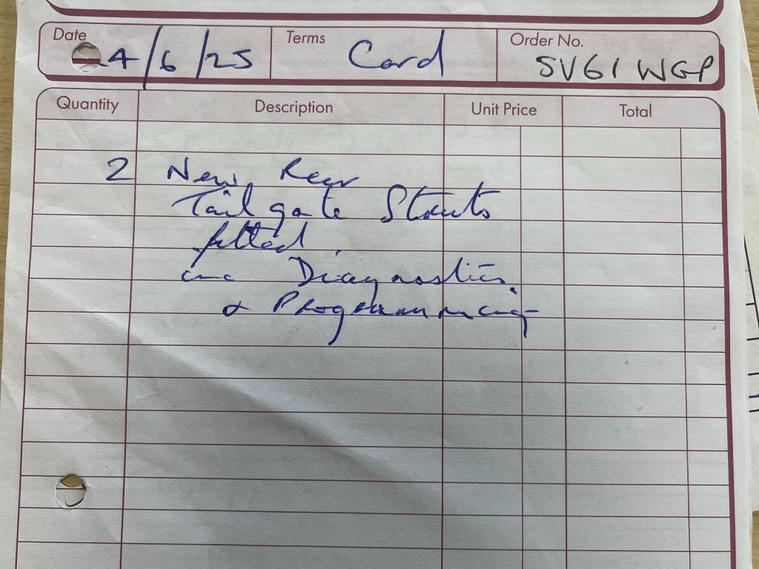 Date Terms Order No.
4/6/25 Card SV61 WGP
Quantity Description Unit Price Total
2 New Rear
Tailgate Struts
fitted.
inc Diagnostics
& Programming